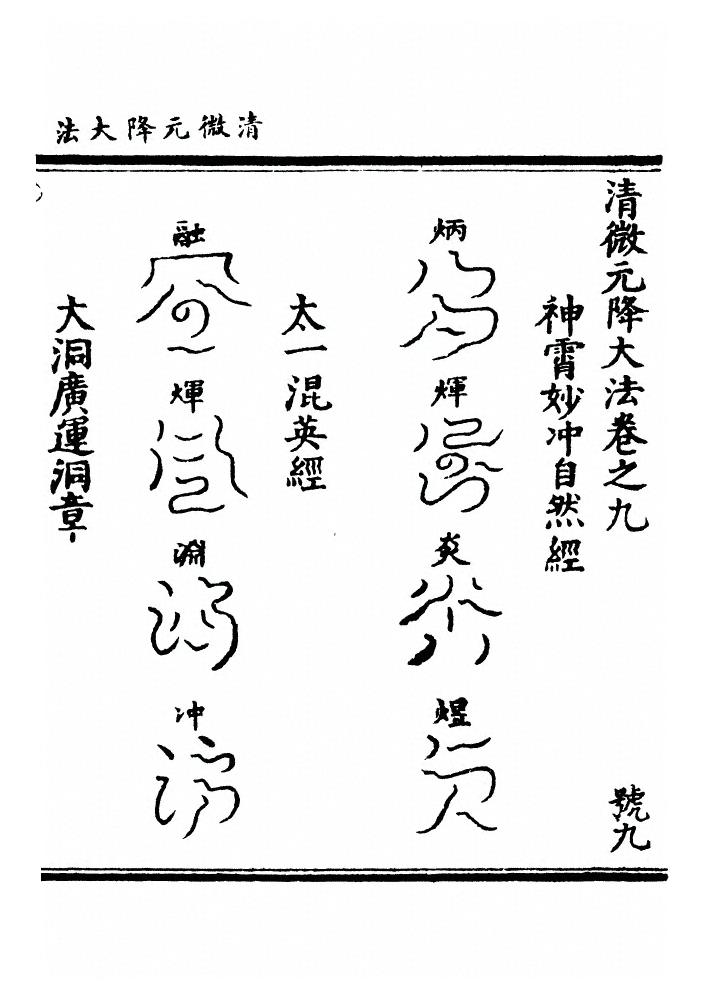 清微元降大法
清微元降大法卷之九
號九
神霄妙冲自然經
炳
煇
炎
煜
太一混英經
融
煇
淵
冲
大洞廣運洞章